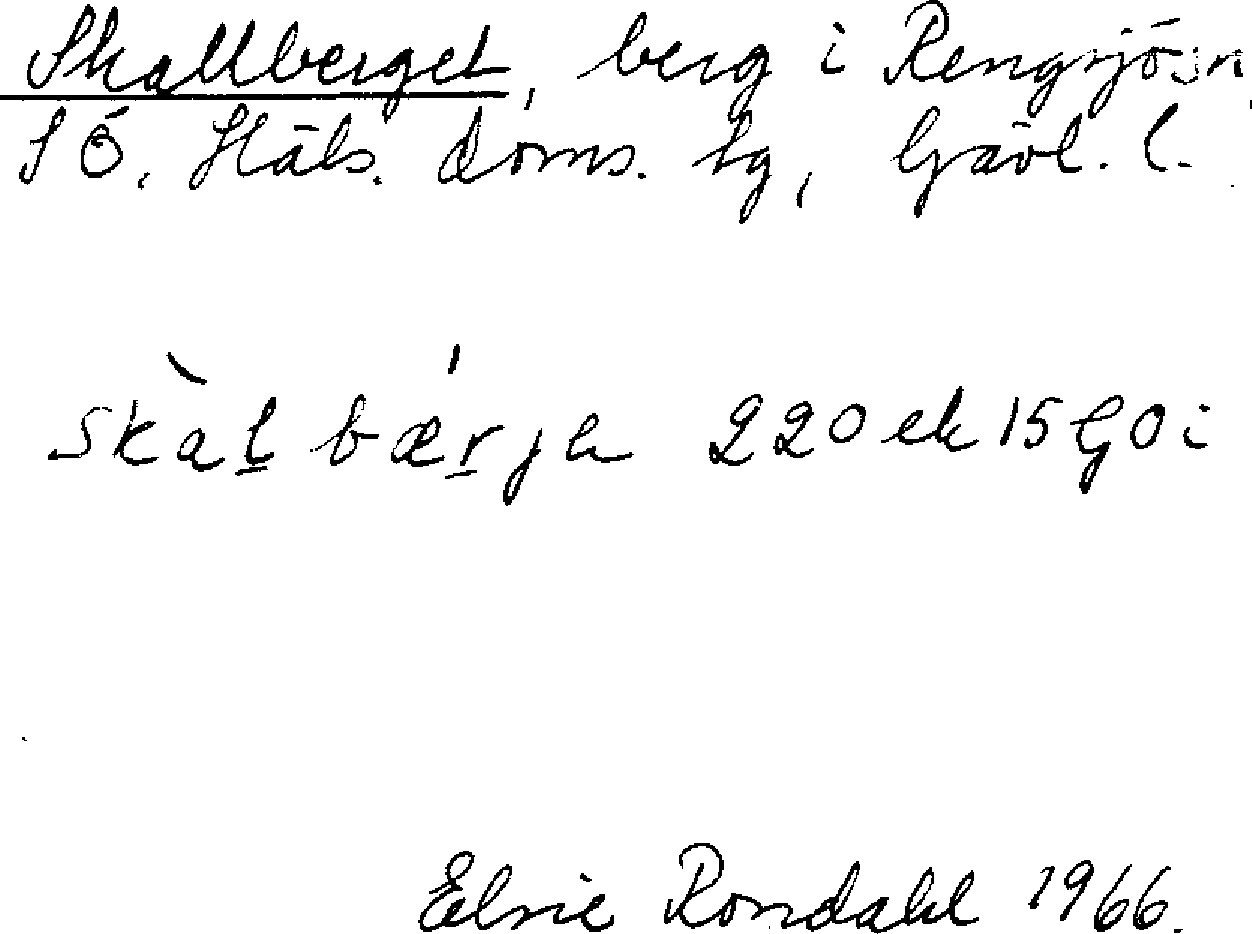 Skallberget, berg i Rengsjö sn,
S Ö. Häls. doms. tg, Gävl. l.
skàl bǽrja 220 ek 15 GO i
Elsie Rondahl 1966.